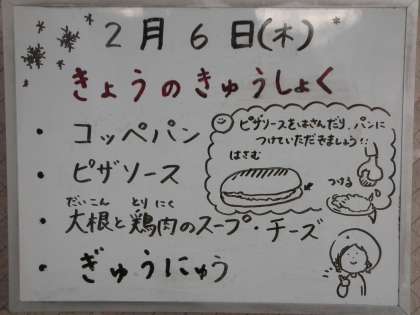 2月6日(木)
きょうのきゅうしょく
・コッペパン
・ピザソース
・大根と鶏肉のスープ・チーズ
だいこん とり にく
・ぎゅうにゅう
ピザソースをはさんだり、パンに
つけていただきましょう!!
はさむ
つける